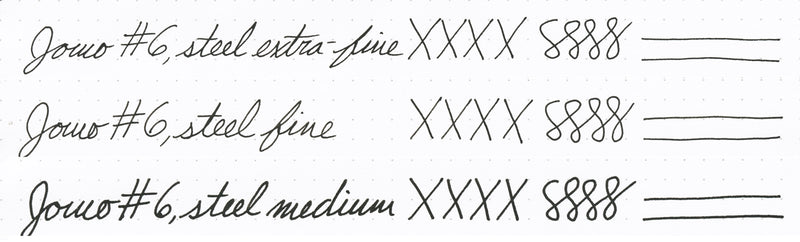 Jowo #6, steel extra-fine XXXX 8888
Jowo #6, steel fine XXXX 8888
Jowo #6, steel medium XXXX 8888